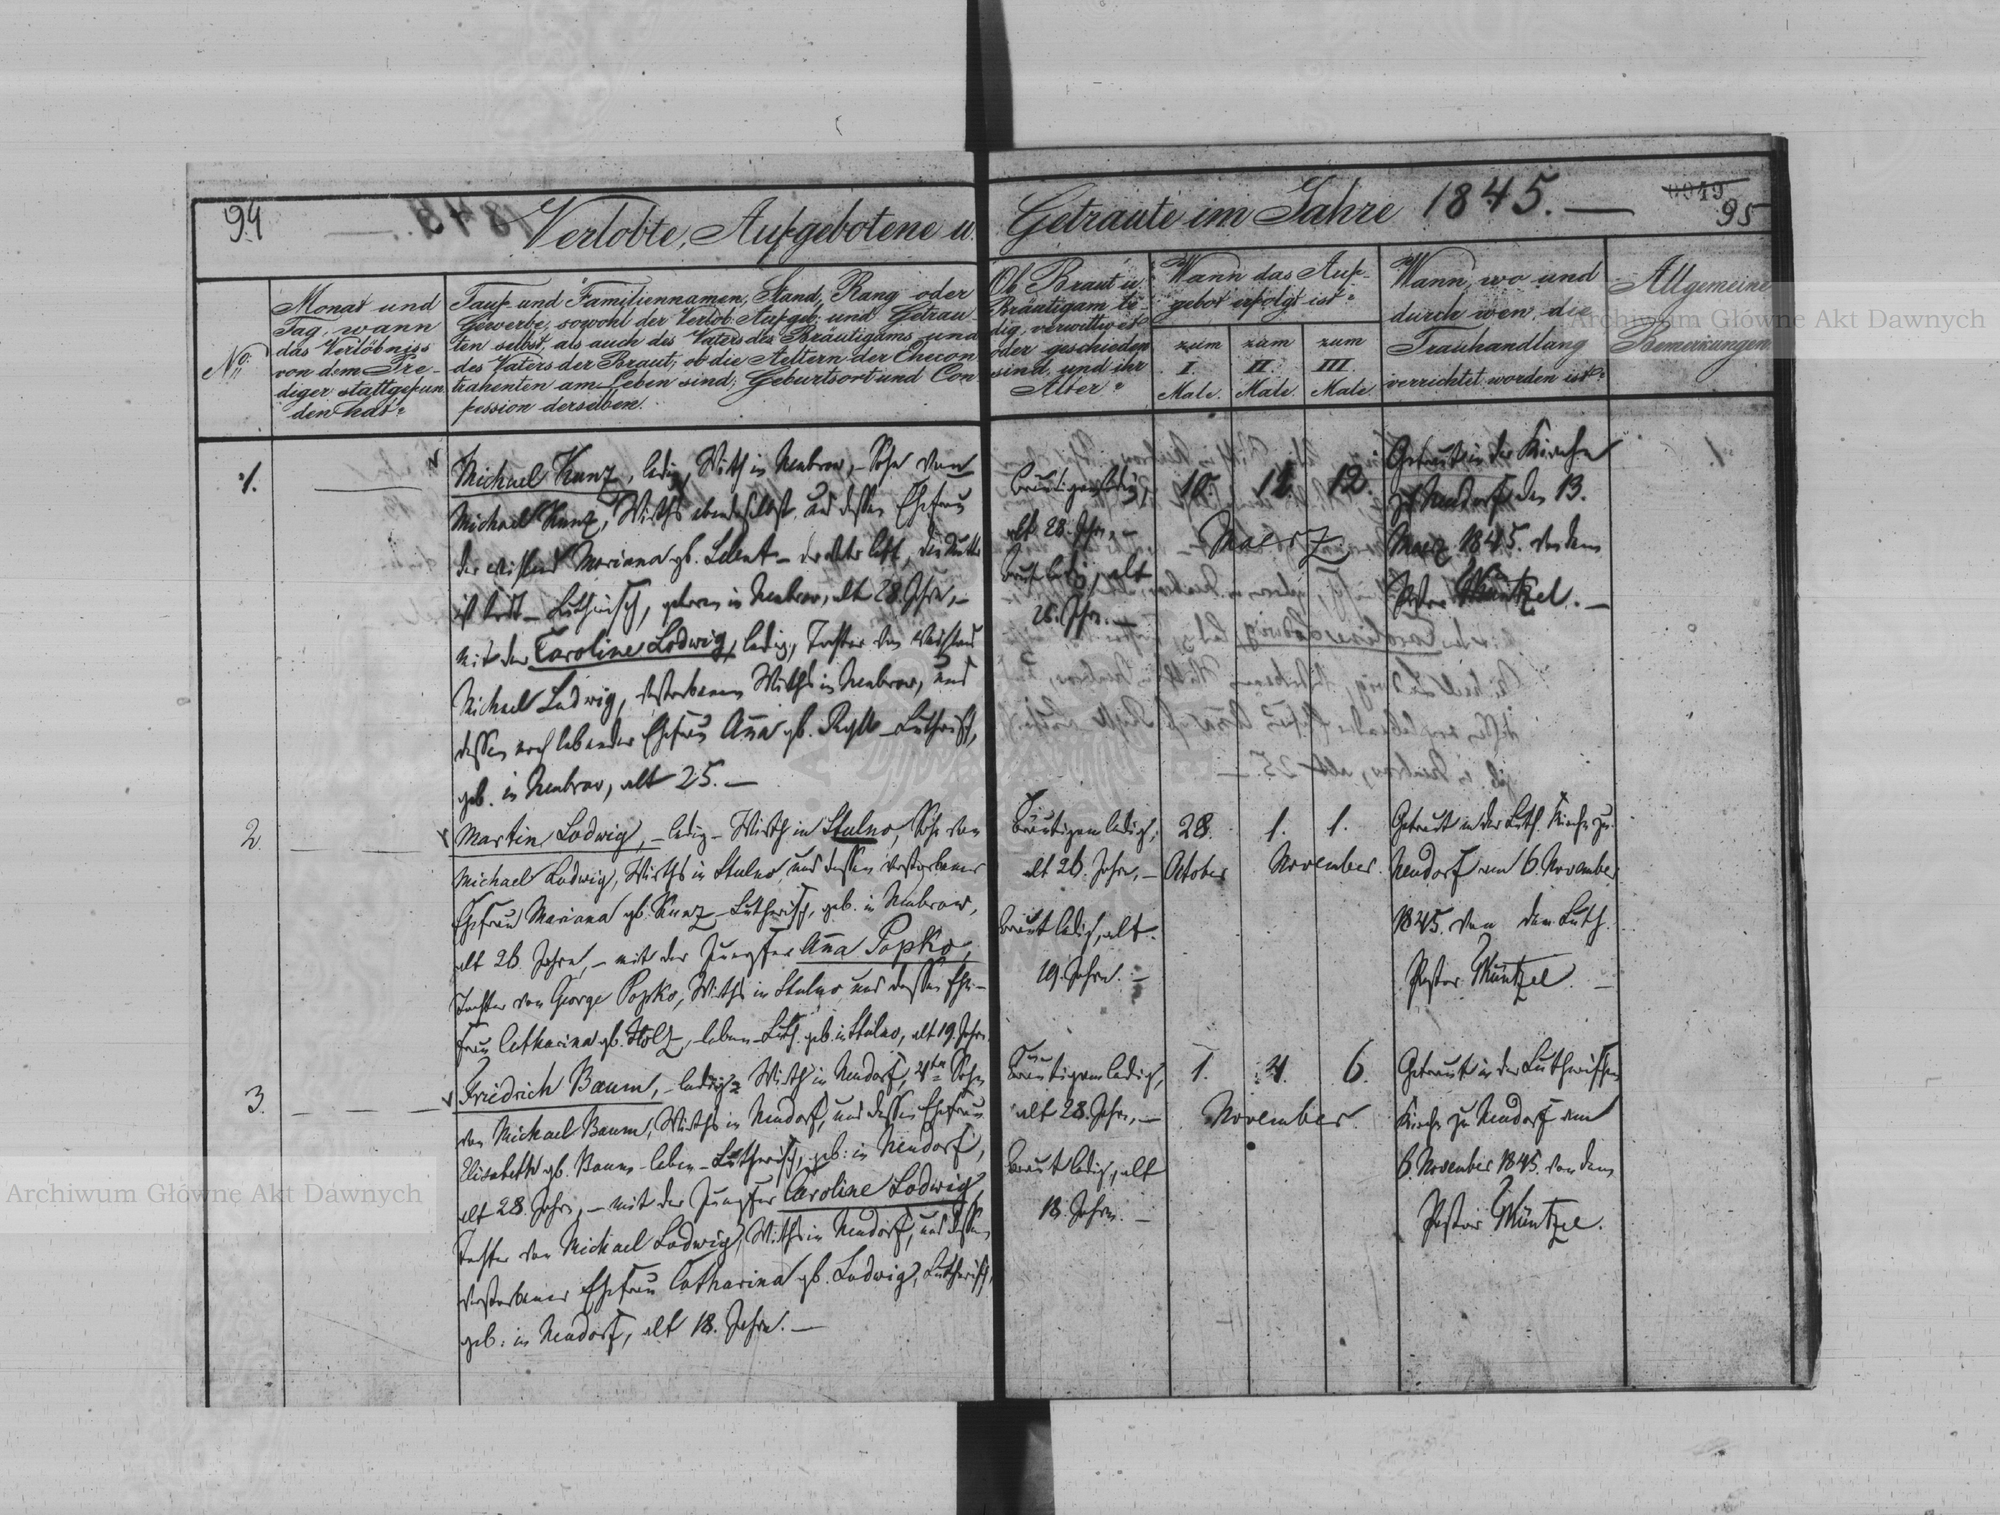 94
Verlobte, Aufgebotene u.
Getraute im Jahre 1845. —
0919
95
No.
Monat und
Tag, wann
das Verlöbniss
von dem Pre-
diger stattgefun
den hat?
Tauf- und Familiennamen, Stand, Rang oder
Gewerbe, sowohl der Verlob. Aufgeb. und Getrau
ten selbst, als auch des Vaters des Bräutigams und
des Vaters der Braut; ob die Aeltern der Ehecon
trahenten am Leben sind; Geburtsort und Con
fession derselben.
Ob Braut u.
Bräutigam le
dig, verwittwet
oder geschieden
sind, und ihr
Alter?
Wann das Auf-
gebot erfolgt ist?
zum I. Male.
zum II. Male.
zum III. Male.
Wann, wo und
durch wen, die
Trauhandlung
verrichtet worden ist?
Allgemeine
Bemerkungen
1.
Michael Kunz, ledig, Wirth in Neubrow, – Sohn von
Michael Kunz, Wirths ebendaselbst, und dessen Ehefrau
der Mariana gb. – der Vater lebt, die Mutter
ist todt – Lutherisch, geboren in Neubrow, alt 28 Jahre, –
mit der Caroline Ludwig, ledig, Tochter von
Michael Ludwig, verstorbenen Wirths in Neubrow, und
dessen noch lebender Ehefrau Anna gb. – Lutherisch,
geb. in Neubrow, alt 25. —
Bräutigam ledig,
alt 28. Jahre, –
Braut ledig, alt
25. Jahre. –
10.
11.
12.
Maerz
Getraut in der Kirche
zu Neudorf den 13.
Maerz 1845. von dem
Pastor Müntzel. —
2.
Martin Ludwig, – ledig – Wirth in Stulno, Sohn von
Michael Ludwig, Wirths in Stulno, und dessen verstorbener
Ehefrau Mariana gb. Kunz – Lutherisch, geb. in Neubrow,
alt 26 Jahre, – mit der Jungfer Anna Popko,
Tochter von George Popko, Wirths in Stulno und dessen Ehe-
frau Catharina gb. Holz, leben – Luth. geb. in Stulno, alt 19. Jahre.
Bräutigam ledig,
alt 26. Jahre, –
Braut ledig, alt
19. Jahre. –
28.
October
1.
1.
November.
Getraut in der Luth. Kirche zu
Neudorf am 6. November
1845. von dem Luth.
Pastor Müntzel. —
3.
Friedrich Baum, – ledig – Wirth in Neudorf, Sohn
von Michael Baum, Wirths in Neudorf, und dessen Ehefrau
Elisabeth gb. Baum – leben – Lutherisch, geb: in Neudorf,
alt 28. Jahre, – mit der Jungfer Caroline Ludwig,
Tochter von Michael Ludwig, Wirths in Neudorf, und dessen
verstorbener Ehefrau Catharina gb. Ludwig, Lutherisch,
geb: in Neudorf, alt 18. Jahre. —
Bräutigam ledig,
alt 28. Jahre, –
Braut ledig, alt
18. Jahre. –
1.
4.
6.
November.
Getraut in der Lutherischen
Kirche zu Neudorf am
6. November 1845. von dem
Pastor Müntzel.
Archiwum Główne Akt Dawnych
Archiwum Główne Akt Dawnych